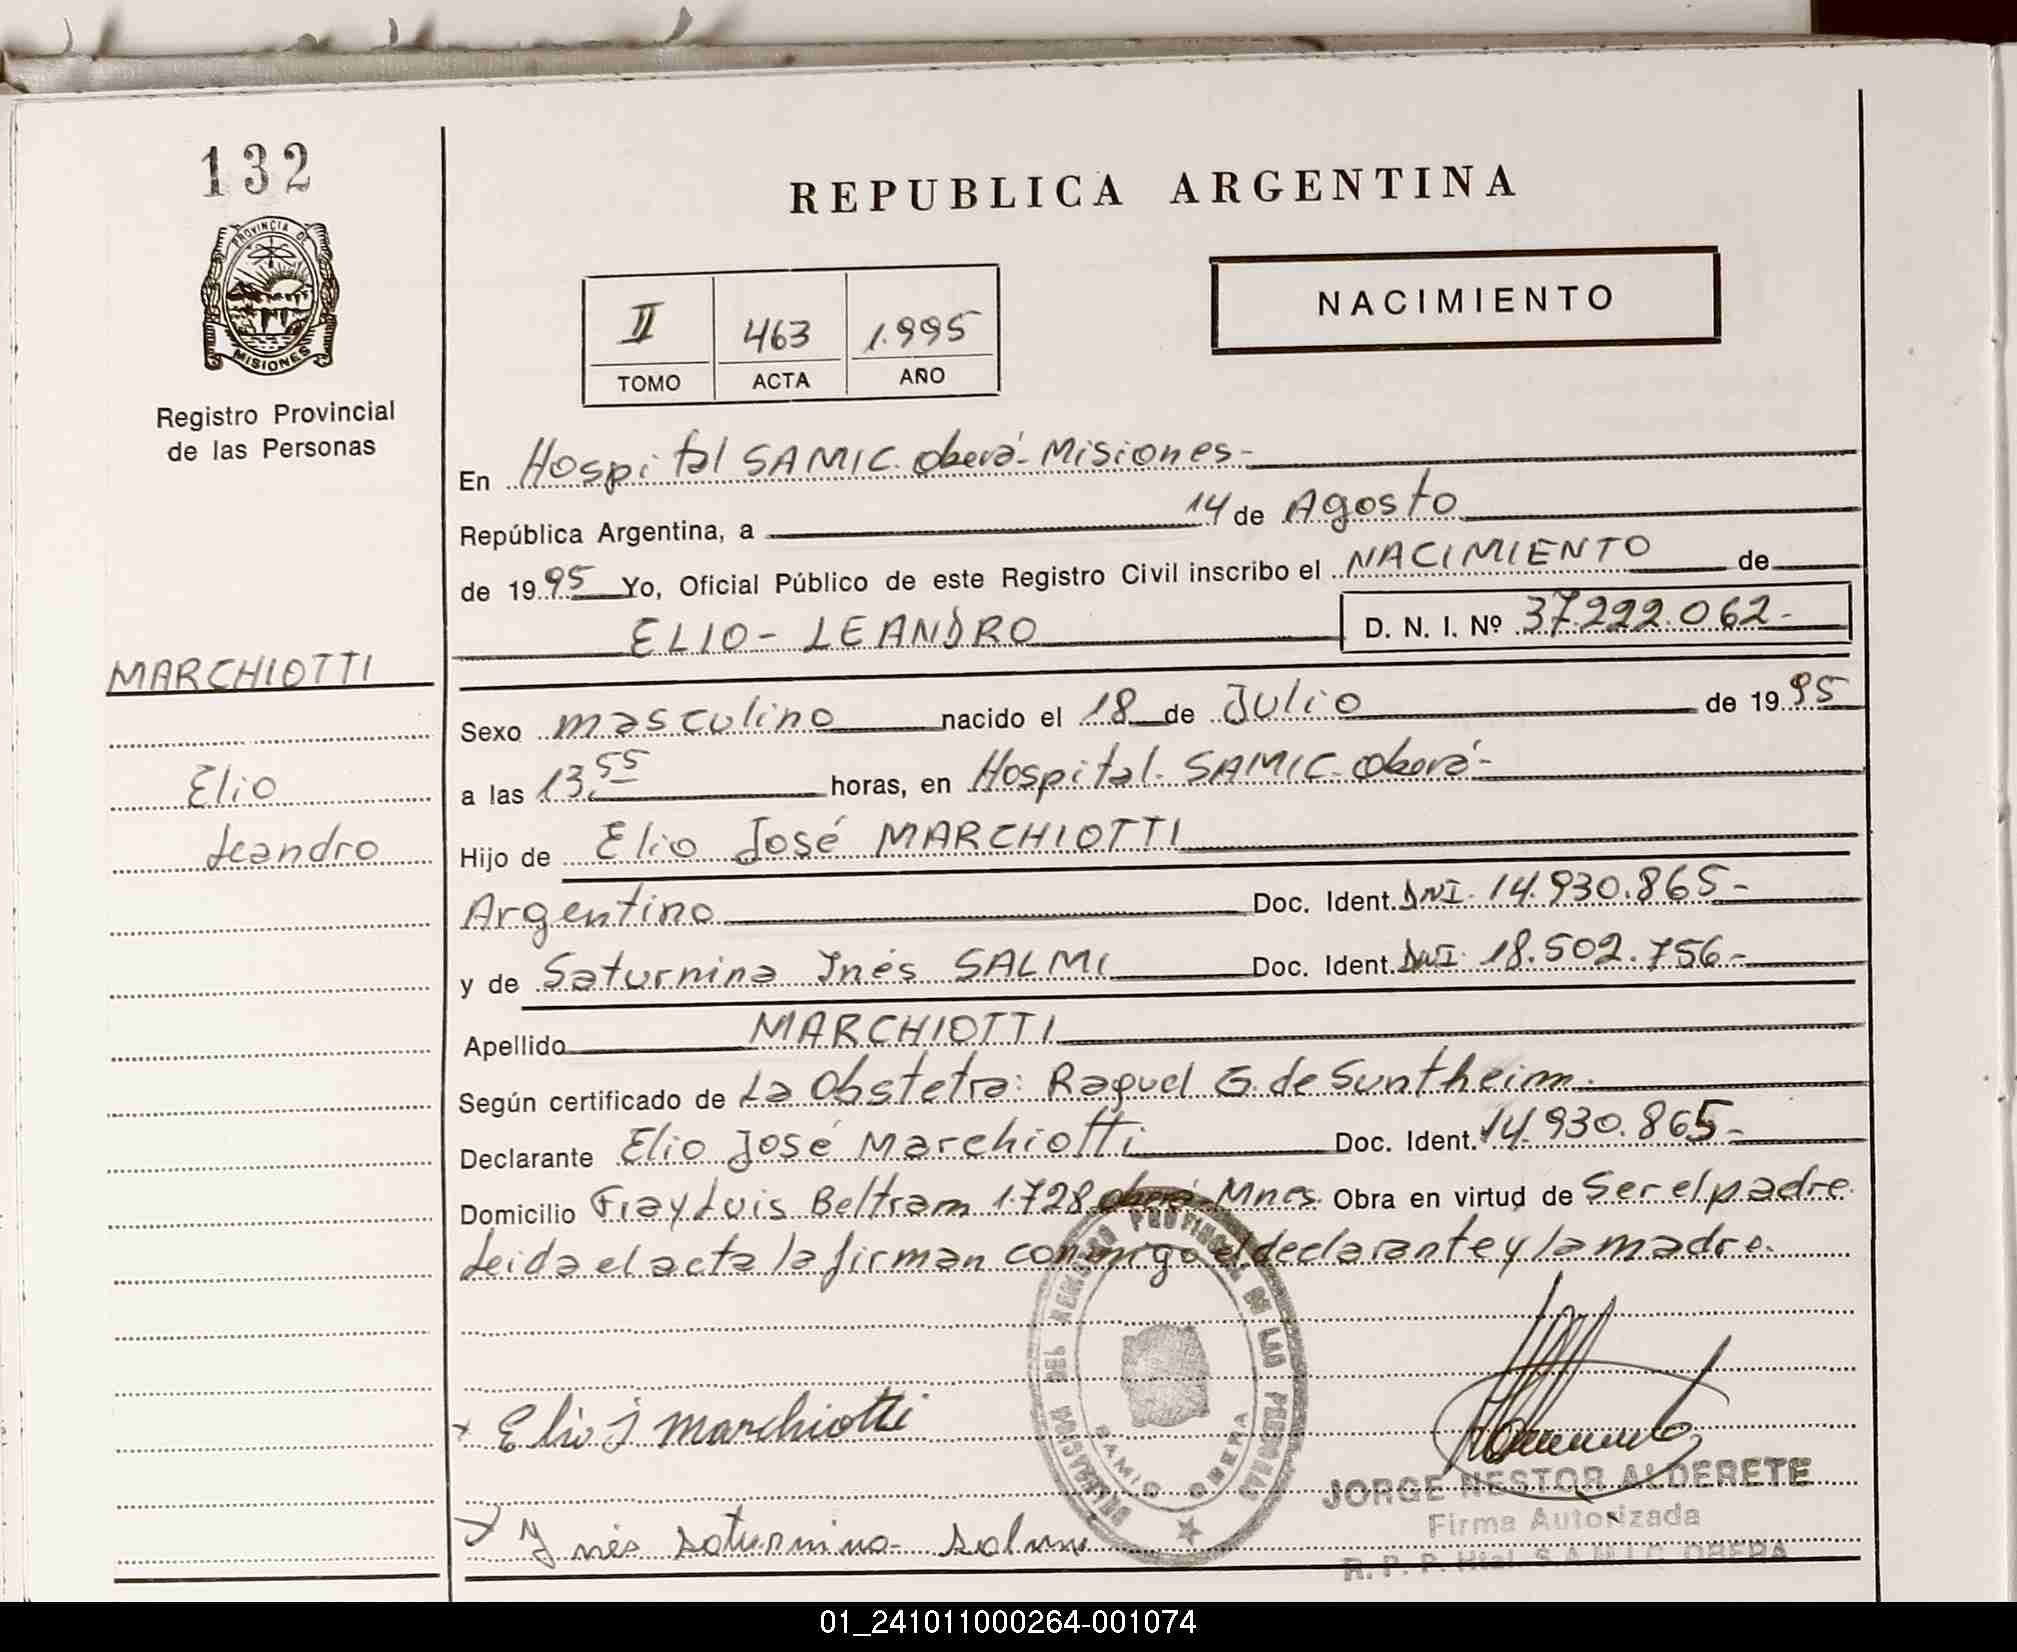 132
PROVINCIA DE
MISIONES
Registro Provincial
de las Personas
REPUBLICA ARGENTINA
NACIMIENTO
II 463 1.995
TOMO ACTA AÑO
En Hospital SAMIC. Oberá- Misiones-
República Argentina, a 14 de Agosto
de 1995 Yo, Oficial Público de este Registro Civil inscribo el NACIMIENTO de
ELIO- LEANDRO D. N. I. Nº 37.222.062-
MARCHIOTTI
Elio
Leandro
Sexo masculino nacido el 18 de Julio de 1995
a las 13,55 horas, en Hospital. SAMIC. Oberá-
Hijo de Elio José MARCHIOTTI
Argentino Doc. Ident. DNI. 14.930.865-
y de Saturnina Inés SALMI Doc. Ident. DNI. 18.502.756-
Apellido MARCHIOTTI
Según certificado de La Obstetra: Raquel G. de Suntheim.
Declarante Elio José Marchiotti Doc. Ident. 14.930.865-
Domicilio Fray Luis Beltram 1.728 Oberá- Mnes. Obra en virtud de Ser el padre
Leida el acta la firman conmigo el declarante y la madre.
DELEGACION DEL REGISTRO PROVINCIAL DE LAS PERSONAS
SAMIC OBERA
Elio J Marchiotti
Ynés Saturnina Salmi
JORGE NESTOR ALDERETE
Firma Autorizada
R. P. P. Htal. S.A.M.I.C. OBERA
01_241011000264-001074